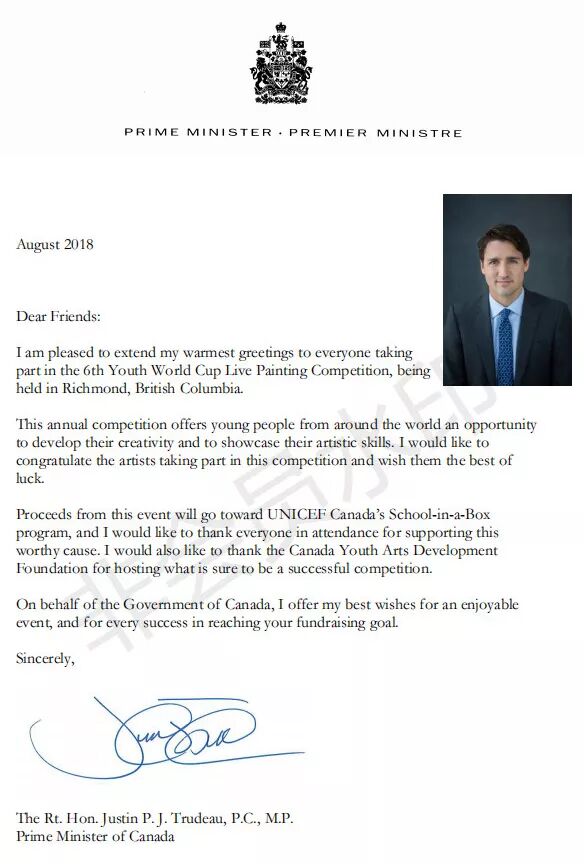 PRIME MINISTER · PREMIER MINISTRE
August 2018
Dear Friends:
I am pleased to extend my warmest greetings to everyone taking
part in the 6th Youth World Cup Live Painting Competition, being
held in Richmond, British Columbia.
This annual competition offers young people from around the world an opportunity
to develop their creativity and to showcase their artistic skills. I would like to
congratulate the artists taking part in this competition and wish them the best of
luck.
Proceeds from this event will go toward UNICEF Canada's School-in-a-Box
program, and I would like to thank everyone in attendance for supporting this
worthy cause. I would also like to thank the Canada Youth Arts Development
Foundation for hosting what is sure to be a successful competition.
On behalf of the Government of Canada, I offer my best wishes for an enjoyable
event, and for every success in reaching your fundraising goal.
Sincerely,
The Rt. Hon. Justin P. J. Trudeau, P.C., M.P.
Prime Minister of Canada
非会员水印